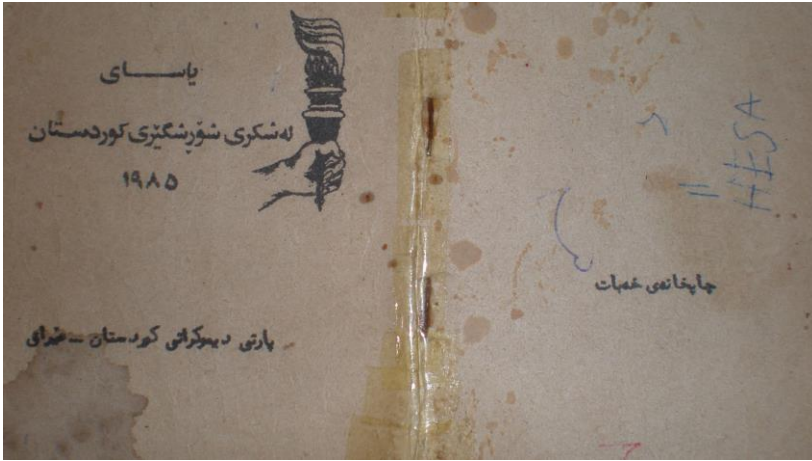 یاســـای
لەشکری شۆڕشگێڕی کوردستان
١٩٨٥
پارتی دیموکراتی کوردستان — عێراق
چاپخانەی خەبات
HESA